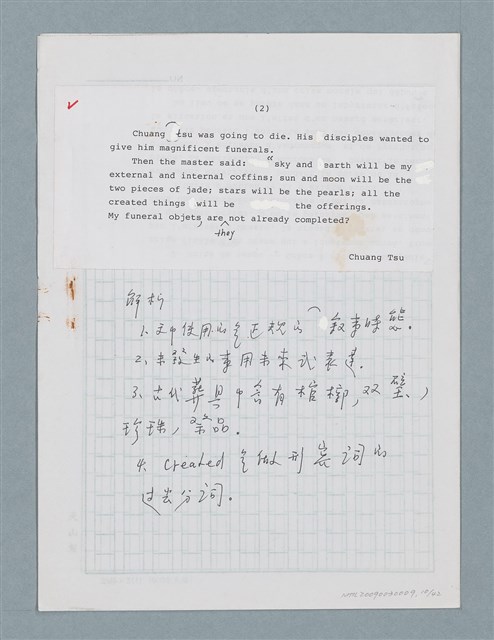 (2)
Chuang tsu was going to die. His disciples wanted to
give him magnificent funerals.
Then the master said: "sky and earth will be my
external and internal coffins; sun and moon will be the
two pieces of jade; stars will be the pearls; all the
created things will be the offerings.
My funeral objets, are not already completed?
they
Chuang Tsu
解析
1. 文中使用的是正规的叙事时态。
2. 未發生的事用未来式表達.
3. 古代葬具中含有棺槨, 双璧、
珍珠, 祭品.
4. created 是做形容词的
过去分词。